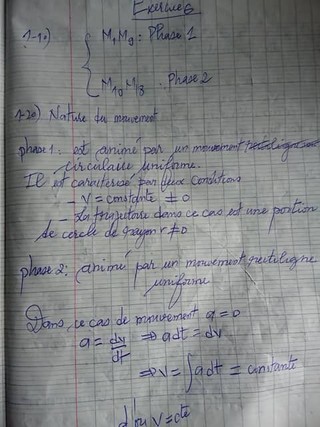 Exercice 6
1-1°) M1 M9 : Phase 1
M10 M13 : Phase 2
1-2°) Nature du mouvement
phase 1 : est animé par un mouvement
circulaire uniforme.
Il est caractérisé par deux conditions
- V = constante ≠ 0
- La trajectoire dans ce cas est une portion
de cercle de rayon r ≠ 0
phase 2 : animé par un mouvement rectiligne
uniforme
Dans ce cas de mouvement a = 0
a = dv/dt ⇒ a dt = dv
⇒ V = ∫ a dt = constante
d'où V = cte